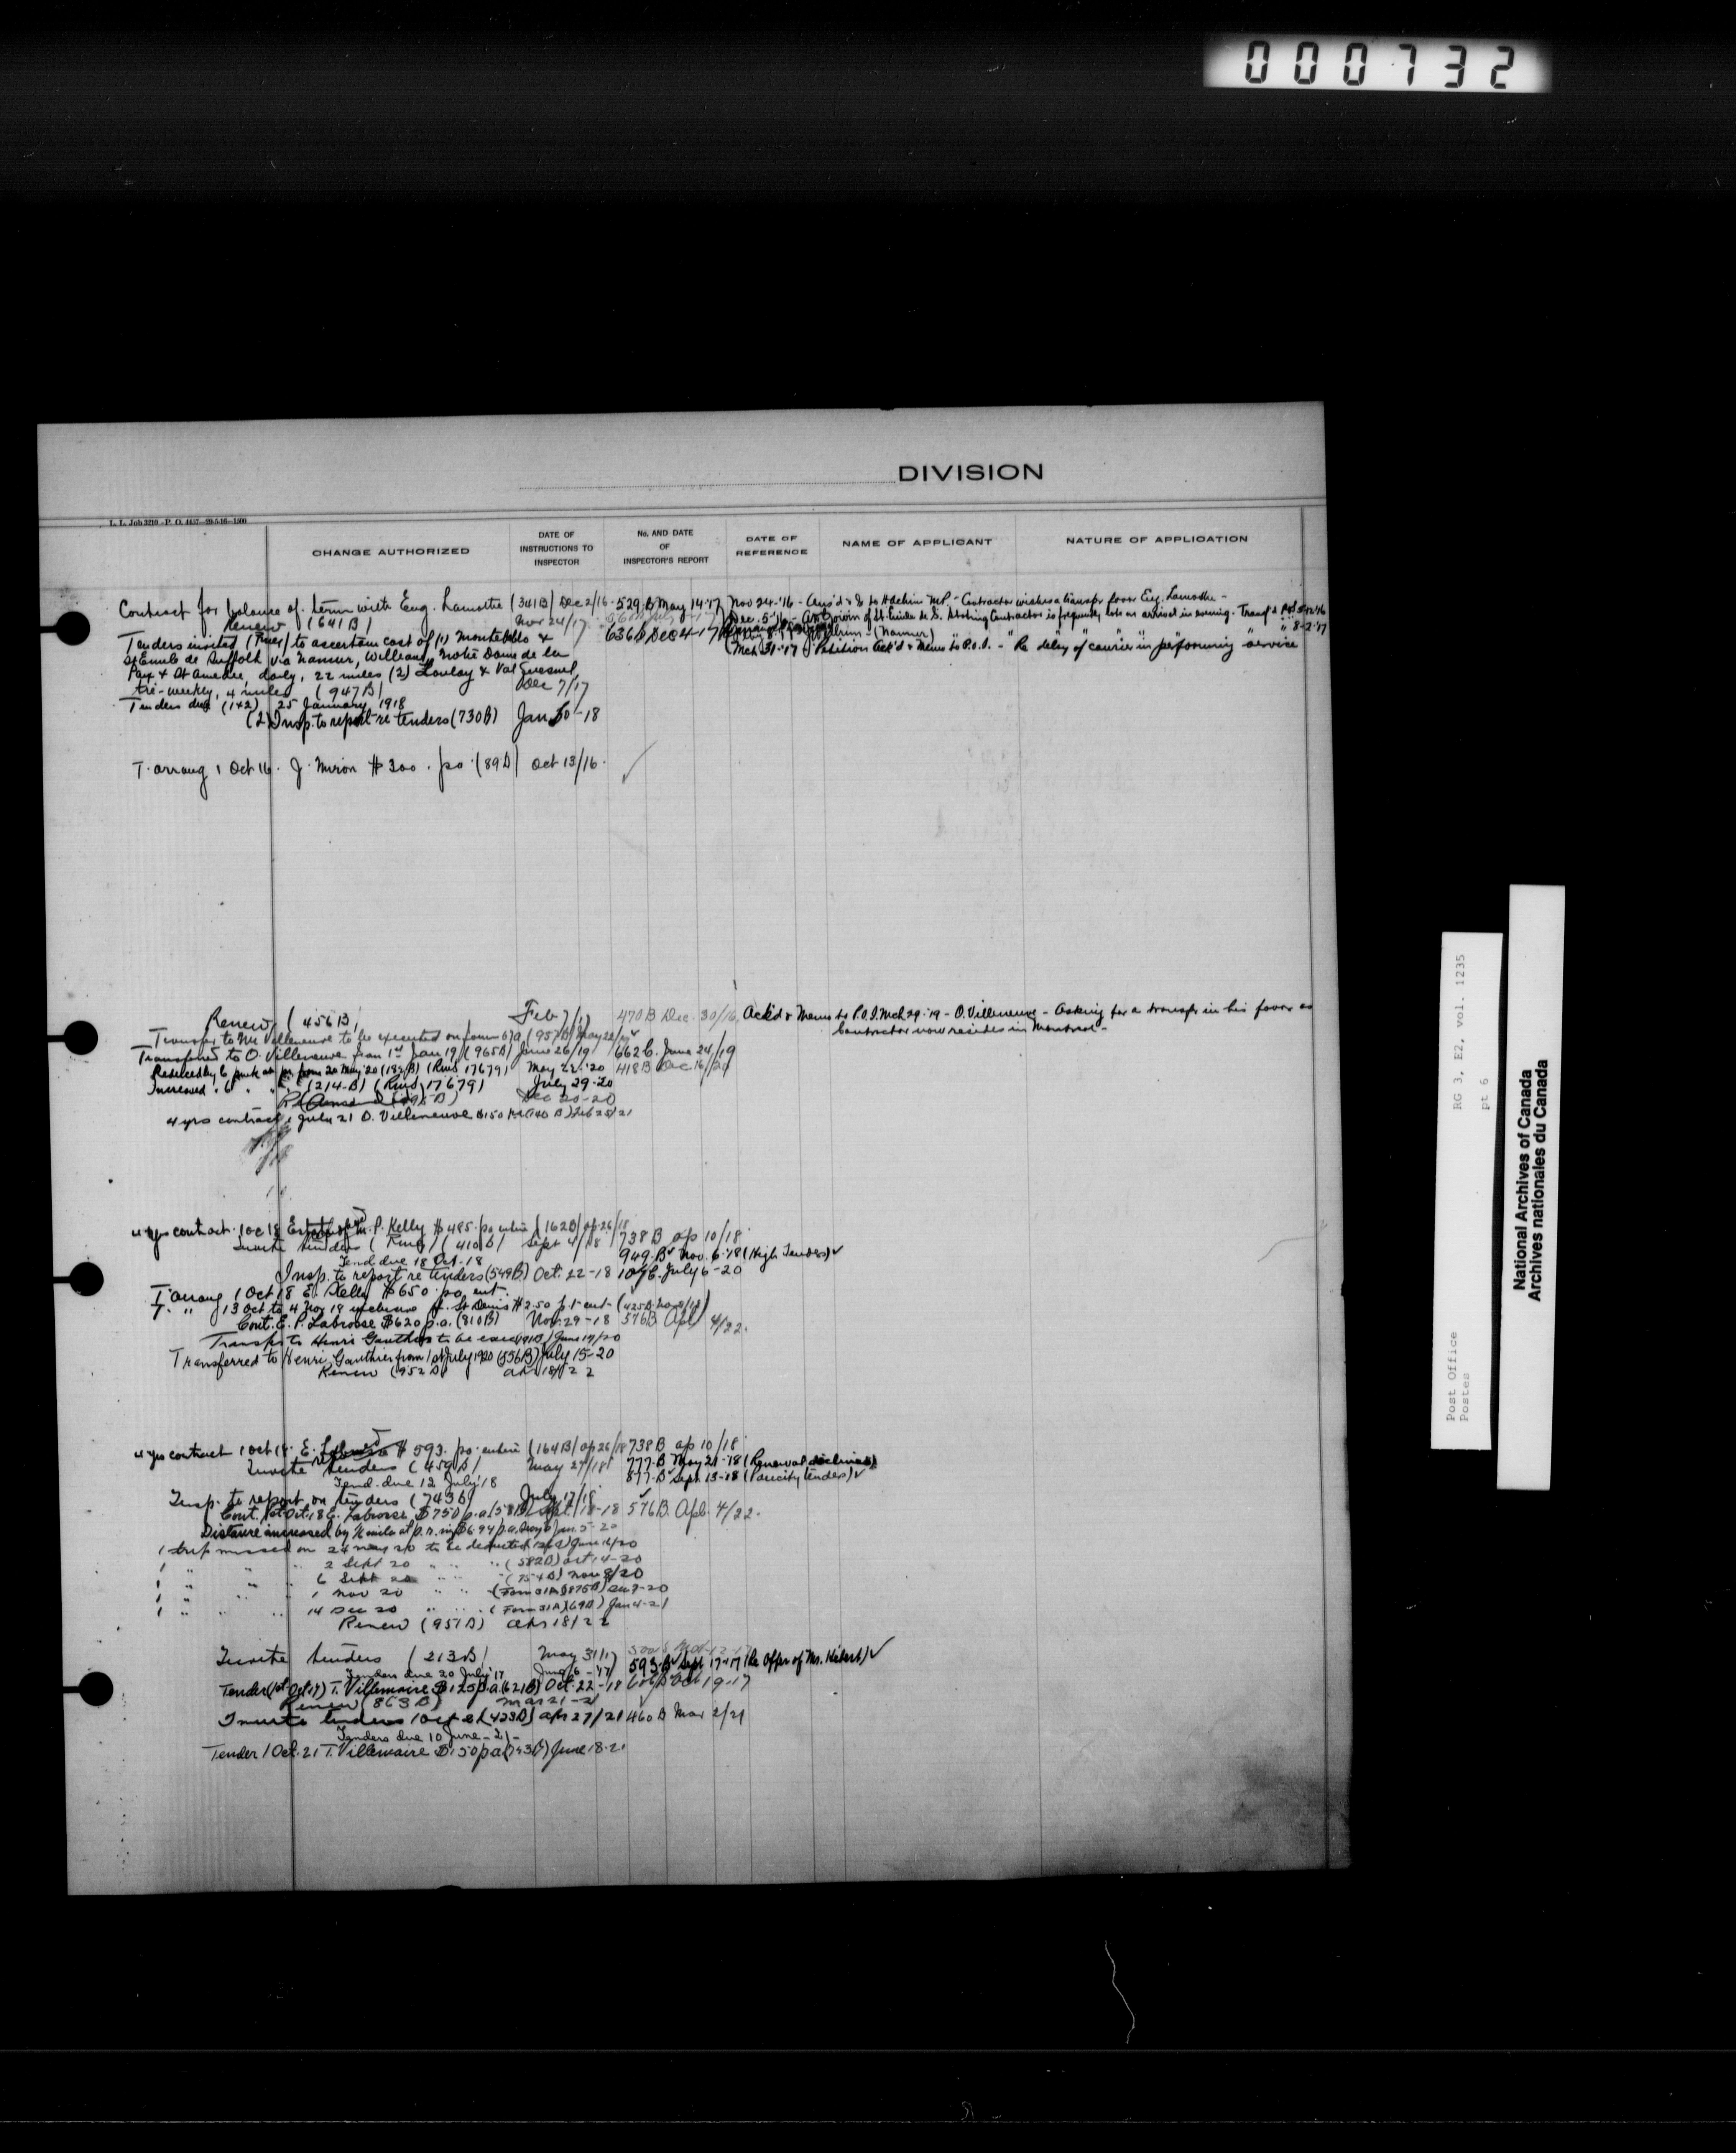 000732
DIVISION
L. L. Job 3210 - P. O. 4437 - 29-5-16 - 1500
CHANGE AUTHORIZED
DATE OF INSTRUCTIONS TO INSPECTOR
No. AND DATE OF INSPECTOR'S REPORT
DATE OF REFERENCE
NAME OF APPLICANT
NATURE OF APPLICATION
Contract for balance of term with Eug. Lamothe (341B) Dec 2/16 529 B May 14-17 Nov 24-'16 - Contractor wishes a transfer favor Eug. Lamothe -
Renew (641B) Nov 24/17
Dec. 5-'16 - Contractor is frequently late on arrival in evening.
Tenders invited to ascertain cost of (1) Montebello & 636 B Dec 4-17 (Namur)
St Emile de Suffolk via Namur, William, Notre Dame de la Mch 31-'17 Petition Ack'd & Memo to P.O.I. - Re delay of courier in performing service
Paix & St Amedee, daily, 22 miles (2) Loulay & Val Quesnel,
tri-weekly, 4 miles (947B) Dec 7/17
Tenders due (1+2) 25 January 1918
(2) Insp. to report re tenders (730B) Jan 30-18
T. arrang 1 Oct 16. J. Miron $300. pa (89B) Oct 13/16.
Renew (456B) Feb 7/17 470 B Dec. 30/16 Ack'd & Memo to P.O.I. Mch 29-'19 - O. Villeneuve - Asking for a transfer in his favor as
Contractor now resides in Montreal -
Transfer to Mr Villeneuve to be executed on form 67a (957B) May 22/19
Transferred to O. Villeneuve from 1st Jan 19 (965B) June 26/19 662 B. June 24/19
(17679) May 22-'20 418 B Dec 16/20
Increased (214-B) (17679) July 29-20
Dec 20-20
4 yrs contract 1 July 21 O. Villeneuve $150 (140 B) Feb 25/21
4 yrs contract 1 Oc 18 M. P. Kelly $485. pa entire (162B) ap 26/18 738 B ap 10/18
Invite tenders (410B) Sept 4/18 949 B Nov. 6-18 (High Tenders)
Tend. due 18 Oct-18
Insp. to report re tenders (549B) Oct. 22-18 July 6-20
T. arrang 1 Oct 18 E. Kelly $650. pa ent.
T. " 13 Oct to 4 Nov 18 inclusive St Denis $2.50
Cont. E. P. Labrosse $620 p.a. (810B) Nov. 29-18 576 B Apl 4/22.
Transfer to Henri Gauthier to be exec June 19/20
Transferred to Henri Gauthier from 1st July 1920 (556B) July 15-20
Renew (952B) Apr 18/22
4 yrs contract 1 Oct 18. E. $593. pa. entire (164B) ap 26/18 738 B ap 10/18
Invite tenders (459B) May 27/18 777-B May 21-'18 (Renewal declined)
Tend. due 12 July '18 877-B Sept 13-18 (Paucity tenders)
Insp. to report on tenders (743B) July 17/18
Cont. 1st Oct. 18 E. Labrosse $750 p.a. (58B) Sept. 18-18 576 B. Apl. 4/22.
Distance increased by
1 trip missed on 24 May 20 to be deducted June 16/20
1 " " 2 Sept 20 " " (582B) Oct 14-20
1 " " 6 Sept 20 " " (754B) Nov 8/20
1 " " 1 Nov 20 " " (Form 31A) (875B) Dec 7-20
1 " " 14 Dec 20 " " (Form 31A) (69B) Jan 4-21
Renew (951B) Apr 18/22
Invite tenders (213B) May 31/17
Tenders due 20 July '17 June 6-'17 593-B Sept 17-17 (Re offer of Mr. Hébert)
Tender (1st Oct 17) T. Villemaire $125 p.a. (621B) Oct. 22-18 Oct 19-17
Renew (863B) Mar 21-21
Invite tenders 1 Oct 21 (423B) Apr 27/21 460 B Mar 2/21
Tenders due 10 June - 21 -
Tender 1 Oct. 21 T. Villemaire $150 p a (743B) June 18-21
RG 3, E2, vol. 1235
pt 6
Post Office
Postes
National Archives of Canada
Archives nationales du Canada